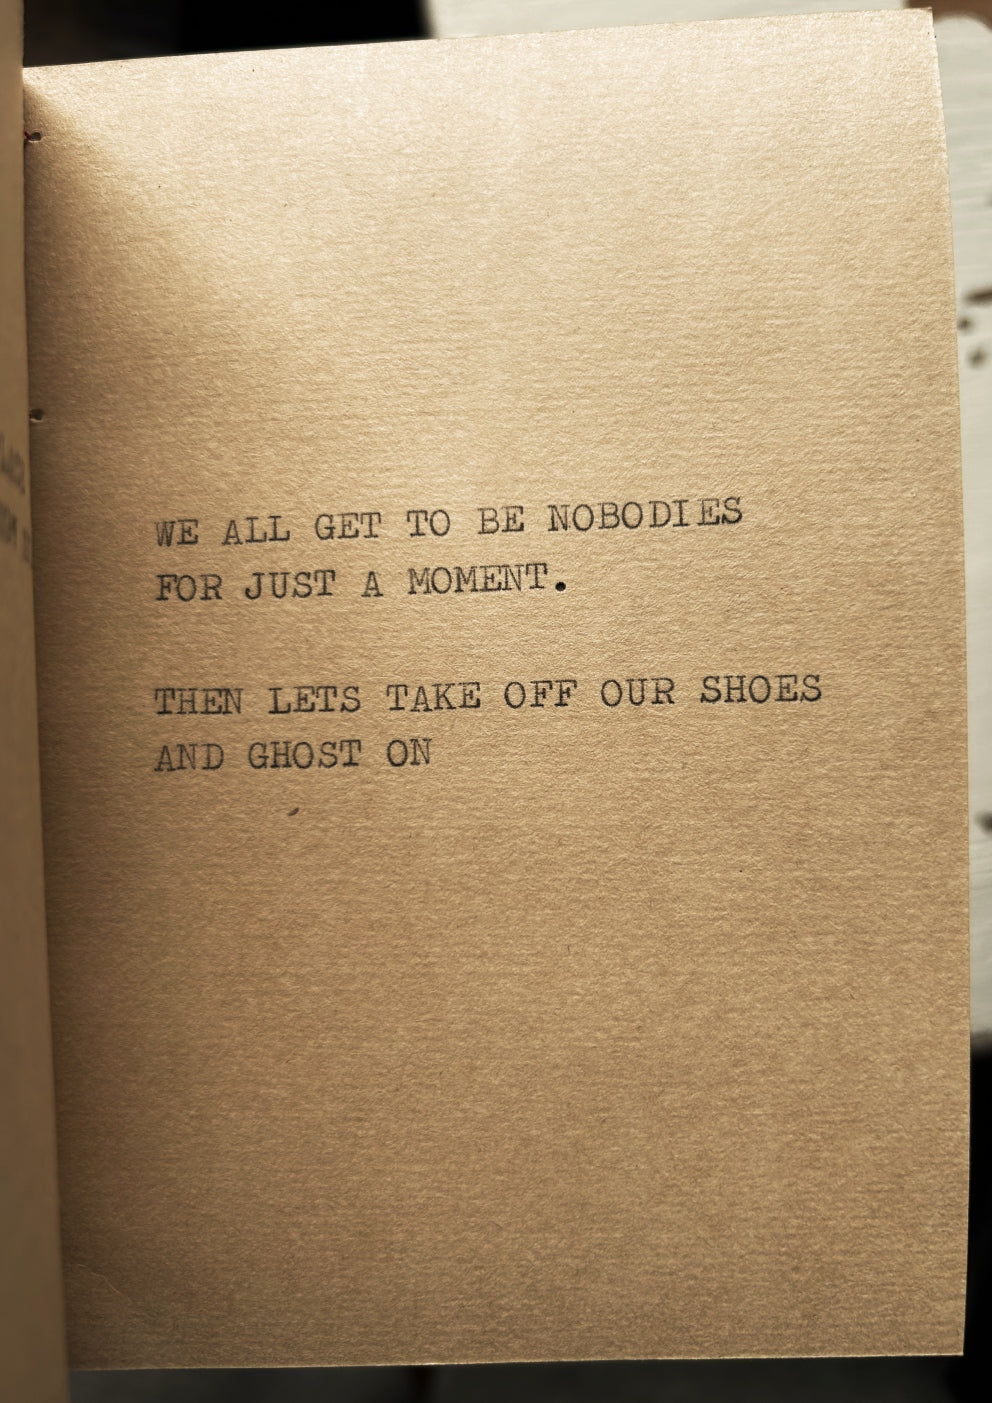 WE ALL GET TO BE NOBODIES
FOR JUST A MOMENT.
THEN LETS TAKE OFF OUR SHOES
AND GHOST ON